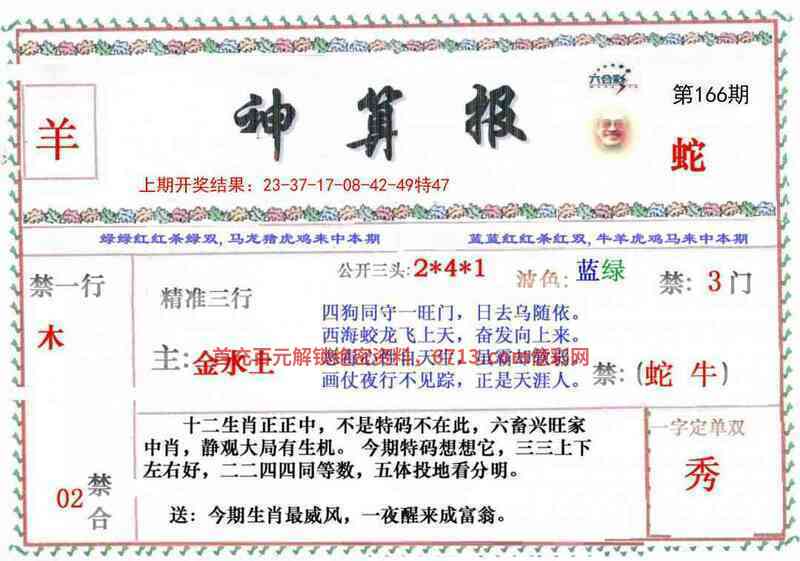 六合彩
第166期
羊
神算报
蛇
上期开奖结果：23-37-17-08-42-49特47
绿绿红红杀绿双,马龙猪虎鸡来中本期
蓝蓝红红杀红双,牛羊虎鸡马来中本期
禁一行
木
精准三行
主:
金水土
公开三头:2*4*1
波色:蓝绿
禁:3门
四狗同守一旺门，日去乌随依。
西海蛟龙飞上天，奋发向上来。
首充百元解锁绝密资料，6713.com
画仗夜行不见踪，正是天涯人。
禁:(蛇 牛)
十二生肖正正中，不是特码不在此，六畜兴旺家
中肖，静观大局有生机。 今期特码想想它，三三上下
左右好，二二四四同等数，五体投地看分明。
送：今期生肖最威风，一夜醒来成富翁。
02
禁
合
一字定单双
秀